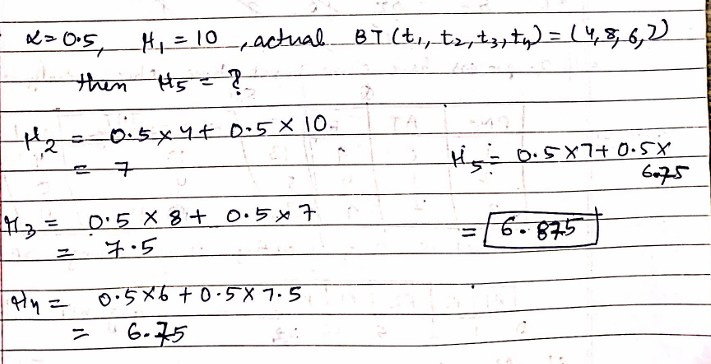 α = 0.5, H₁ = 10, actual BT (t₁, t₂, t₃, t₄) = (4, 8, 6, 7)
then H₅ = ?
H₂ = 0.5 × 4 + 0.5 × 10
= 7
H₃ = 0.5 × 8 + 0.5 × 7
= 7.5
H₄ = 0.5 × 6 + 0.5 × 7.5
= 6.75
H₅ = 0.5 × 7 + 0.5 ×
6.75
= 6.875